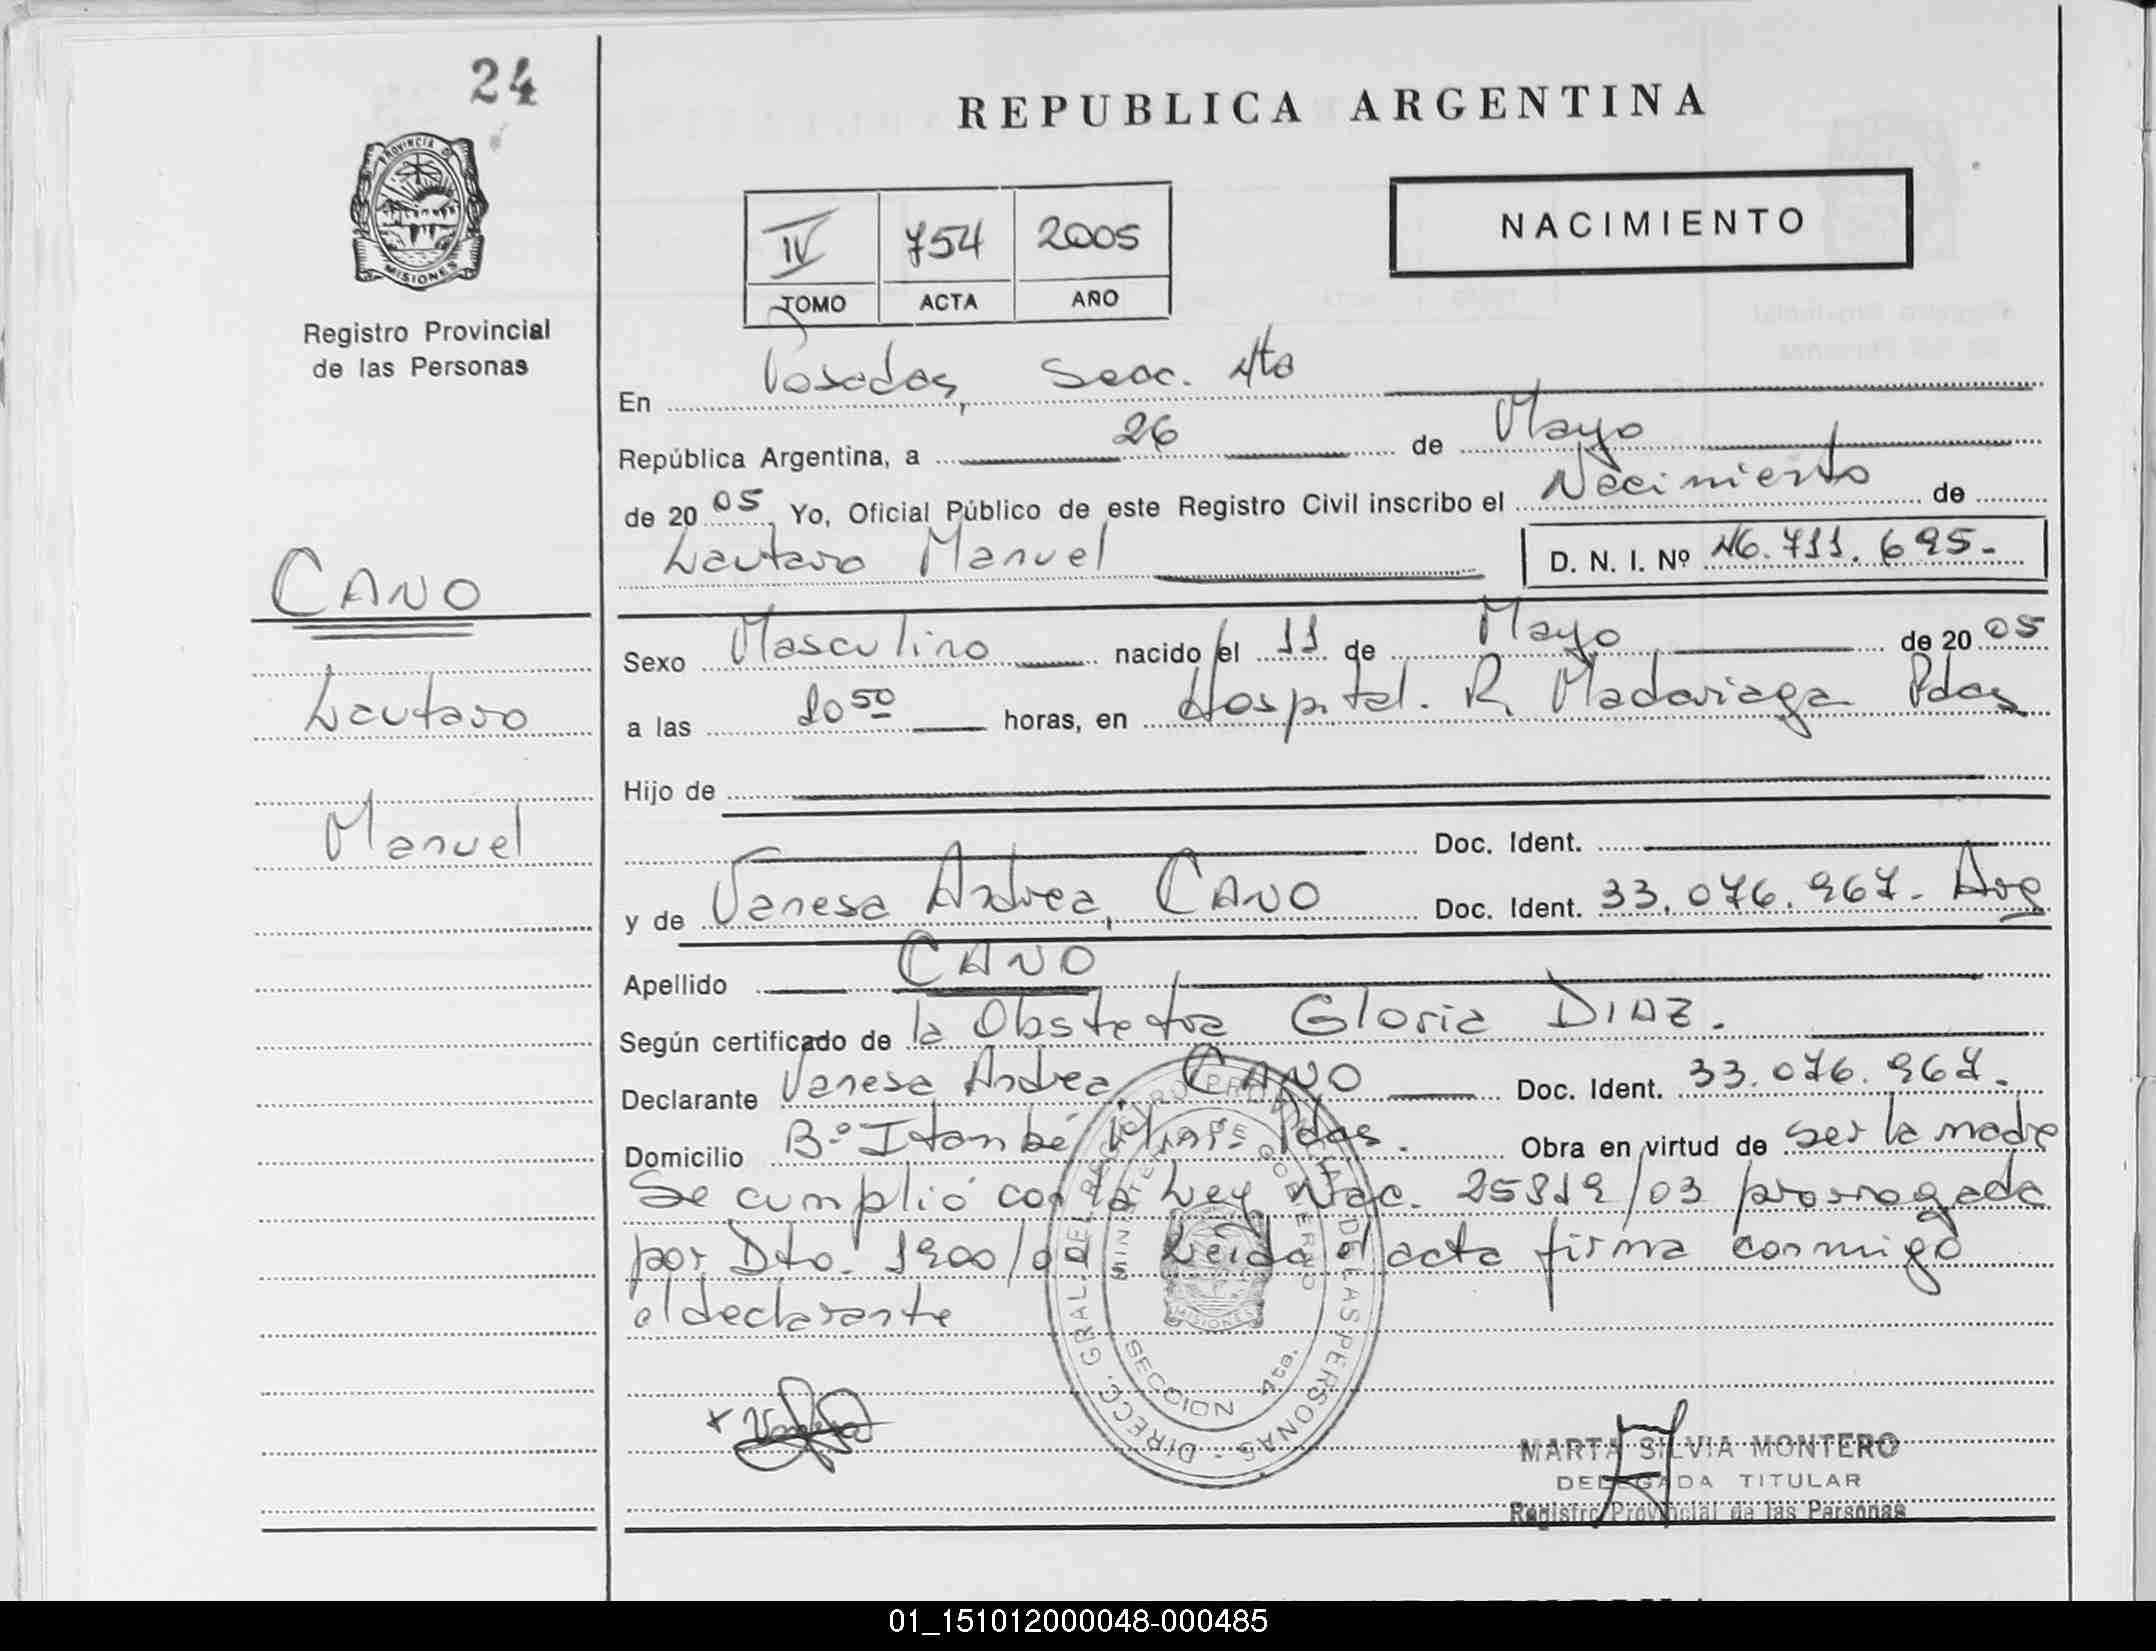 24
REPUBLICA ARGENTINA
PROVINCIA DE MISIONES
Registro Provincial
de las Personas
NACIMIENTO
IV 754 2005
TOMO ACTA AÑO
En Posadas, Secc. 4ta
República Argentina, a 26 de Mayo
de 2005 Yo, Oficial Público de este Registro Civil inscribo el Nacimiento de
Lautaro Manuel D. N. I. Nº 46.711.695.-
CANO
Lautaro
Manuel
Sexo Masculino nacido el 11 de Mayo de 2005
a las 2050 horas, en Hospital. R. Madariaga Pdas
Hijo de
Doc. Ident.
y de Vanesa Andrea, CANO Doc. Ident. 33.076.967.- Arg
Apellido CANO
Según certificado de la Obstetra Gloria DIAZ.
Declarante Vanesa Andrea, CANO Doc. Ident. 33.076.967.
Domicilio B.º Itambé Miní- Pdas. Obra en virtud de ser la madre
Se cumplió con la Ley Nac. 25819/03 prorrogada
por Dto. 1900/04 Leida el acta firma conmigo
el declarante
DIRECC. GRAL. DEL REGISTRO PROVINCIAL DE LAS PERSONAS
MINISTERIO DE GOBIERNO
MISIONES
SECCION 4ta.
MARTA SILVIA MONTERO
DELEGADA TITULAR
Registro Provincial de las Personas
01_151012000048-000485